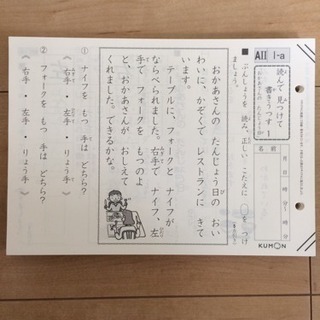 AⅡ 1-a
読んで 見つけて
書きうつす 1
名前
月 日
■ ぶんしょうを 読み、正しい こたえに ○を つけ
ましょう。
おかあさんの たんじょう日の おい
わいに、かぞくで レストランに きて
います。
テーブルに、フォークと ナイフが
ならべられました。右手で ナイフ、左
手で フォークを もつのよ
と、おかあさんが おしえて
くれました。できるかな。
① ナイフを もつ 手は どちら?
( 右手 ・ 左手 ・ りょう手 )
② フォークを もつ 手は どちら?
( 右手 ・ 左手 ・ りょう手 )
KUMON